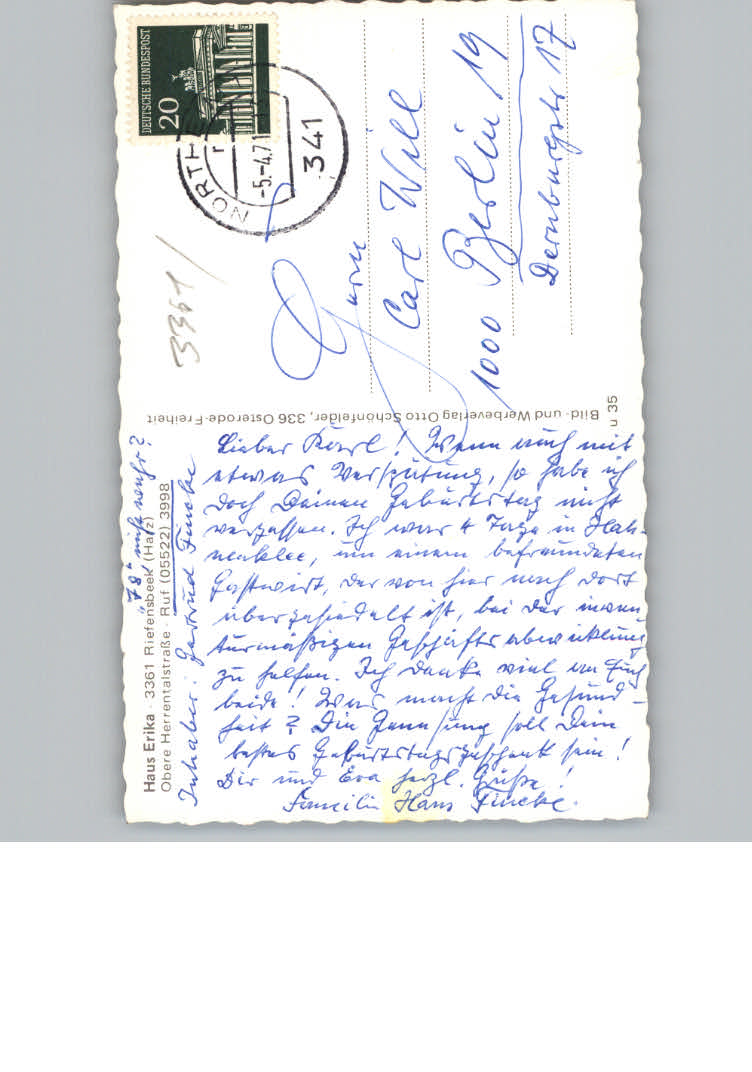 Haus Erika · 3361 Riefensbeek (Harz)
Obere Herrentalstraße · Ruf (05522) 3998
Inhaber: Gertrud Fincke
"78" nicht wahr?
Lieber Karl! Wenn auch mit
etwas Verspätung, so habe ich
doch Deinen Geburtstag nicht
vergessen. Ich war 4 Tage in Hah-
nenklee, um einem befreundeten
Gastwirt, der von hier nach dort
übergesiedelt ist, bei der inven-
turmäßigen Geschäftsabwicklung
zu helfen. Ich denke viel an Euch
beide! Was macht die Gesund-
heit? Die Genesung soll Dein
bestes Geburtstagsgeschenk sein!
Dir und Eva herzl. Grüße!
Familie Hans Fincke.
Bild- und Werbeverlag Otto Schönfelder, 336 Osterode-Freiheit
u 35
3361
DEUTSCHE BUNDESPOST
20
NORTHE
-5.-4.71
341
Herrn
Carl Will
1000 Berlin 19
Dernburgstr 17